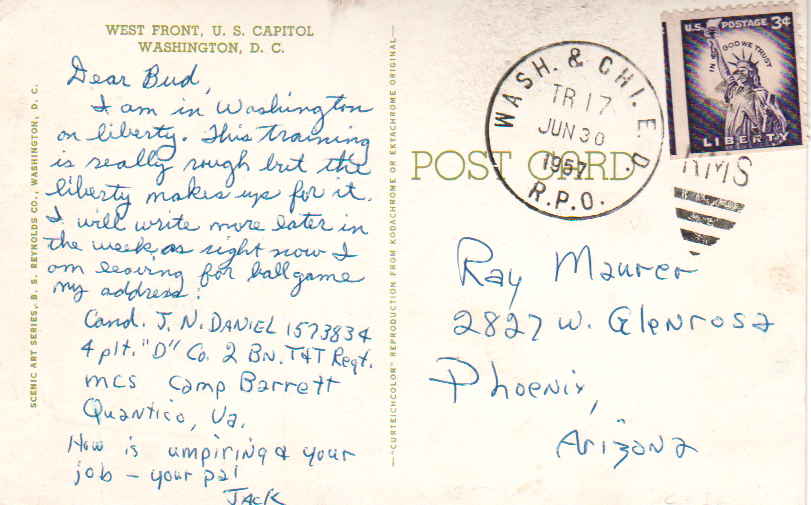 WEST FRONT, U. S. CAPITOL
WASHINGTON, D. C.
Dear Bud,
I am in Washington
on liberty. This training
is really rough but the
liberty makes up for it.
I will write more later in
the week, as right now I
am leaving for ballgame
my address:
Cand. J. N. DANIEL 1573834
4 plt. "D" Co. 2 BN. T&T Regt.
MCS Camp Barrett
Quantico, Va.
How is umpiring & your
job – your pal
JACK
SCENIC ART SERIES, B. S. REYNOLDS CO., WASHINGTON, D. C.
—"CURTEICHCOLOR" REPRODUCTION FROM KODACHROME OR EKTACHROME ORIGINAL—
POST CARD
WASH. & CHI. E. D.
TR 17
JUN 30
1957
R.P.O.
RMS
U.S. POSTAGE 3¢
IN GOD WE TRUST
LIBERTY
Ray Maurer
2827 W. Glenrosa
Phoenix,
Arizona